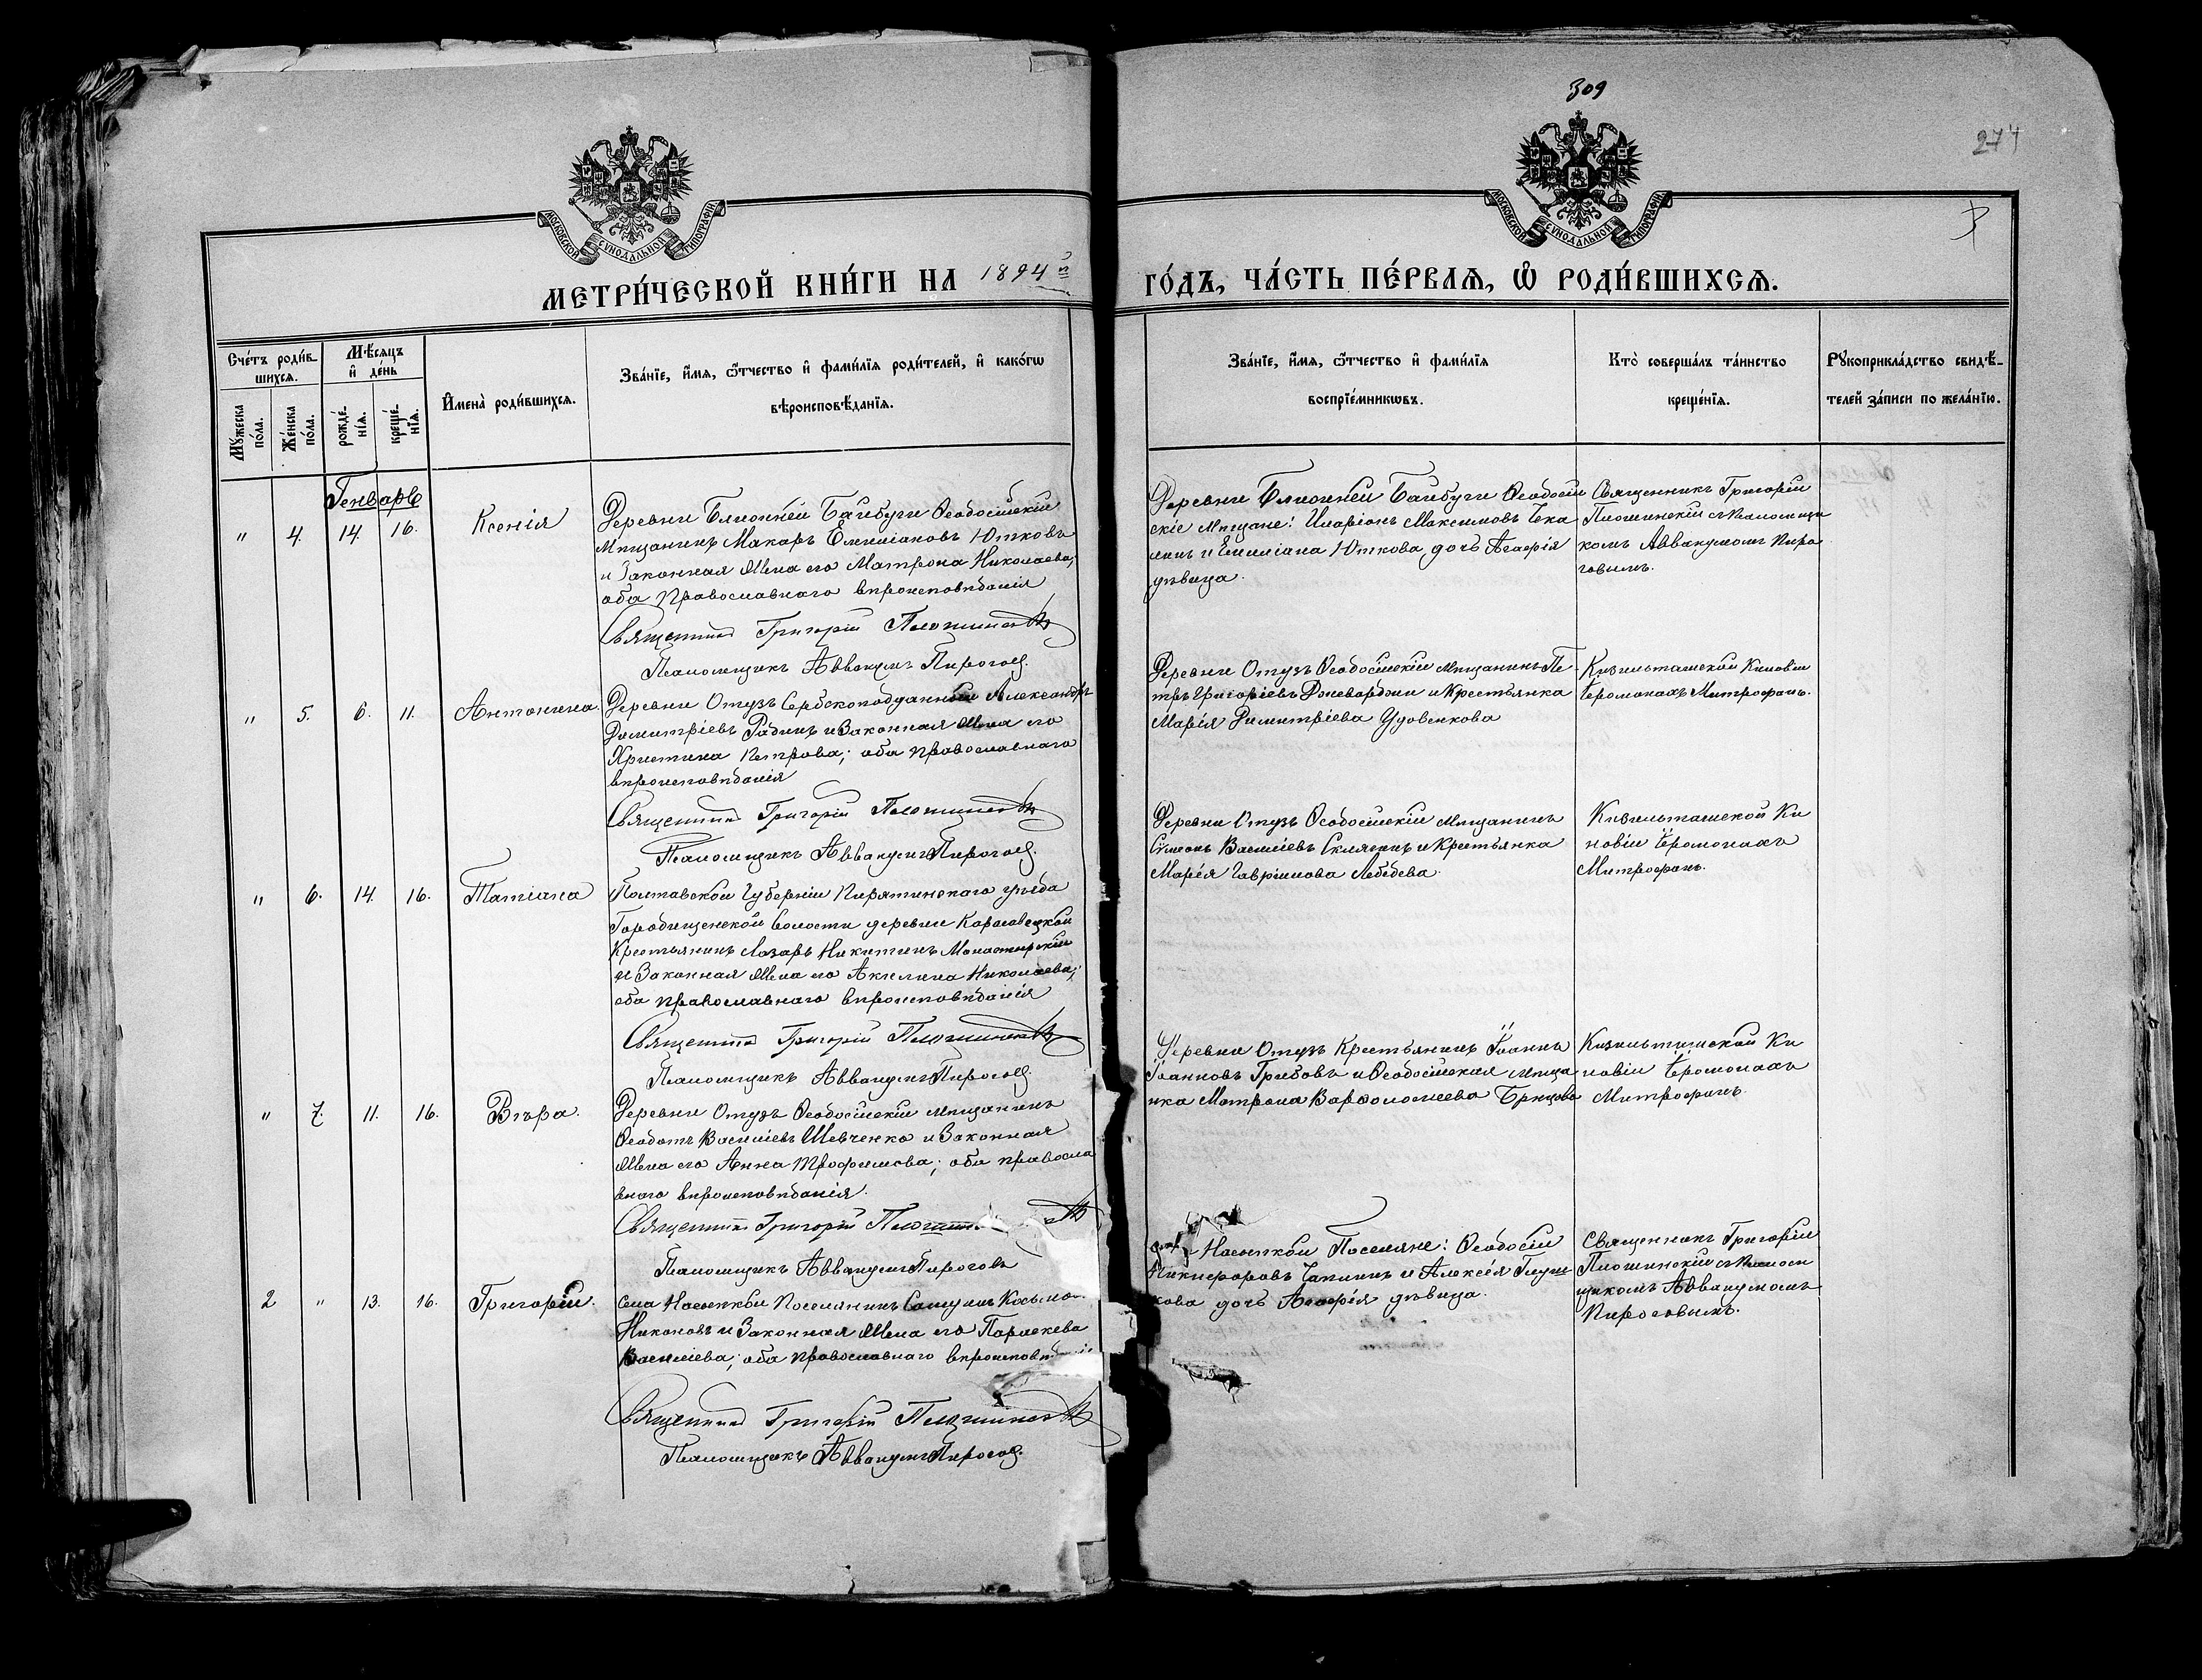 309
274
3
МОСКОВСКОЙ СѴНОДАЛЬНОЙ ТИПОГРАФІИ
МОСКОВСКОЙ СѴНОДАЛЬНОЙ ТИПОГРАФІИ
МЕТРИ́ЧЕСКОЙ КНИ́ГИ НА 1894й
ГО́ДЪ, ЧА́СТЬ ПЕ́РВАѦ, Ѽ РОДИ́ВШИХСѦ.
Сче́тъ роди́в-
шихсѧ.
Мѣ́сѧцъ
и҆ де́нь
Мꙋ́жеска
по́ла.
Же́нска
по́ла.
рожде́-
нїѧ.
креще́-
нїѧ.
И҆мена̀ роди́вшихсѧ.
Зва́нїе, и҆́мѧ, ѻ҆́тчество и҆ фами́лїѧ роди́телей, и҆ како́гѡ
вѣроисповѣ́данїѧ.
Зва́нїе, и҆́мѧ, ѻ҆́тчество и҆ фами́лїѧ
воспрїе́мникѡвъ.
Кто̀ соверша́лъ та́инство
креще́нїѧ.
Рꙋкоприкла́дство свидѣ́-
телей за́писи по жела́нїю.
Генварь
" 4. 14. 16. Ксенія
Деревни Ближней Байбуги Ѳеодосійскій
Мѣщанинъ Макаръ Емиліановъ Ютковъ
и Законная Жена его Матрона Николаева,
оба Православнаго вѣроисповѣданія
Священникъ Григорій
Псаломщикъ Аввакумъ Пироговъ.
Деревни Ближней Байбуги Ѳеодосій
скіе Мѣщане: Иларіонъ Максимовъ
и Емиліана Юткова дочь Агафія
дѣвица.
Священникъ Григорій
Плошинскій съ Псаломщи
комъ Аввакумомъ Пиро
говымъ.
" 5. 6. 11. Антонина.
Деревни Отузъ Сербскоподданный Александръ
Димитріевъ Радинъ и Законная Жена его
Христина Петрова; оба православнаго
вѣроисповѣданія
Священникъ Григорій
Псаломщикъ Аввакумъ Пироговъ.
Деревни Отузъ Ѳеодосійскій мѣщанинъ Пе
тръ Григоріевъ Дževарджи и Крестьянка
Марія Димитріева Удовенкова
Кизильташской Киновіи
Іеромонахъ Митрофанъ.
" 6. 14. 16. Татіана
Полтавской Губерніи Пирятинскаго уѣзда
Городищенской Волости деревни
Крестьянинъ Лазарь Никитинъ Монастырскій
и Законная Жена его Акилина Николаева;
оба православнаго вѣроисповѣданія
Священникъ Григорій
Псаломщикъ Аввакумъ Пироговъ.
Деревни Отузъ Ѳеодосійскій мѣщанинъ
Симеонъ Василіевъ Склягинъ и Крестьянка
Марія Гавріилова Лебедева.
Кизильташской Ки
новіи Іеромонахъ
Митрофанъ.
" 7. 11. 16. Вѣра.
Деревни Отузъ Ѳеодосійскій мѣщанинъ
Ѳеодотъ Василіевъ Шевченко и Законная
Жена его Анна Трофимова; оба правосла
внаго вѣроисповѣданія.
Священникъ Григорій
Псаломщикъ Аввакумъ Пироговъ
Деревни Отузъ Крестьянинъ Іоаннъ
Іоанновъ Грибовъ и Ѳеодосійская мѣща
нка Матрона Варѳоломеева
Кизильташской Ки
новіи Іеромонахъ
Митрофанъ.
2 " 13. 16. Григорій.
Села Насыпкой Поселянинъ Самуилъ Козьмо
Никоновъ и Законная Жена его Параскева
Василіева; оба православнаго
Священникъ Григорій
Псаломщикъ Аввакумъ Пироговъ.
Насыпкой Поселяне: Ѳеодосій
Никифоровъ Чаплинъ и Алексія Глуш
кова дочь Агафія дѣвица.
Священникъ Григорій
Плошинскій съ Псаломи
щикомъ Аввакумомъ
Пироговымъ.